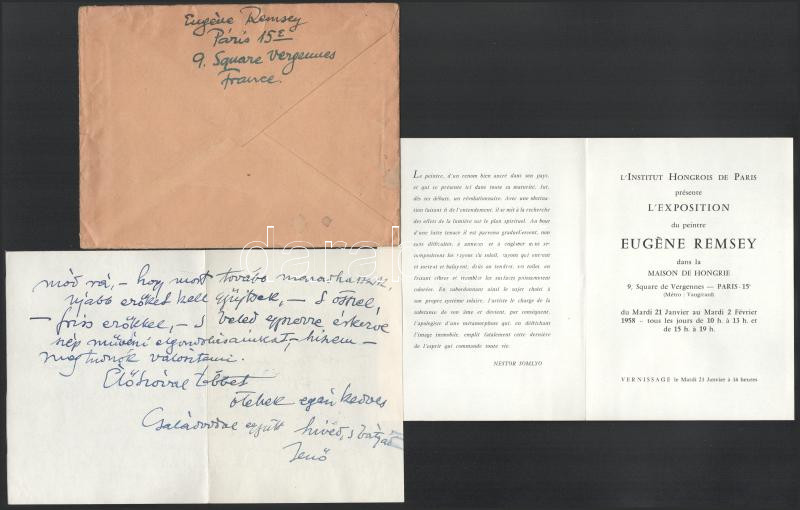 Eugène Remsey
Páris 15E
9. Square Vergennes
France.
mód rá, – hogy most tovább
újabb erőket kell gyűjtsek, – s ősszel,
– friss erőkkel, – s veled egyetérve
szép művészi elgondolásainkat, – hiszem –
meg tudjuk valósítani.
Élőszóval többet
ölellek egész kedves
Családoddal együtt híved, s barátod
Jenő
Le peintre, d'un renom bien ancré dans son pays,
et qui se présente ici dans toute sa maturité, fut,
dès ses débuts, un révolutionnaire. Avec une obstina-
tion faisant fi de l'entendement, il se mit à la recherche
des effets de la lumière sur le plan spirituel. Au bout
d'une lutte tenace il est parvenu graduellement, non
sans difficultés, à amener et à enfermer dans ses
compositions les rayons du soleil, rayons qui entrent
et sortent et balayent, drus ou tendres, ces toiles, en
faisant vibrer et trembler les surfaces puissamment
colorées. En subordonnant ainsi le sujet choisi à
son propre système solaire, l'artiste le charge de la
substance de son âme et devient, par conséquent,
l'apologète d'une métamorphose qui, en défrichant
l'image immobile, emplit fatalement cette dernière
de l'esprit qui commande toute vie.
NESTOR SOMLYO
L'INSTITUT HONGROIS DE PARIS
présente
L'EXPOSITION
du peintre
EUGÈNE REMSEY
dans la
MAISON DE HONGRIE
9, Square de Vergennes — PARIS-15e
(Métro : Vaugirard)
du Mardi 21 Janvier au Mardi 2 Février
1958 - tous les jours de 10 h. à 13 h. et
de 15 h. à 19 h.
VERNISSAGE le Mardi 21 Janvier à 16 heures